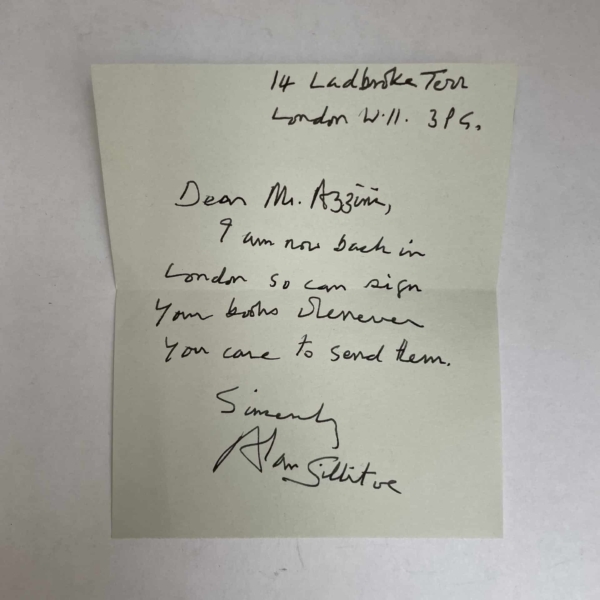 14 Ladbroke Terr
London W.11. 3PG.
Dear Mr. Azzini,
I am now back in
London so can sign
your books whenever
you care to send them.
Sincerely
Alan Sillitoe